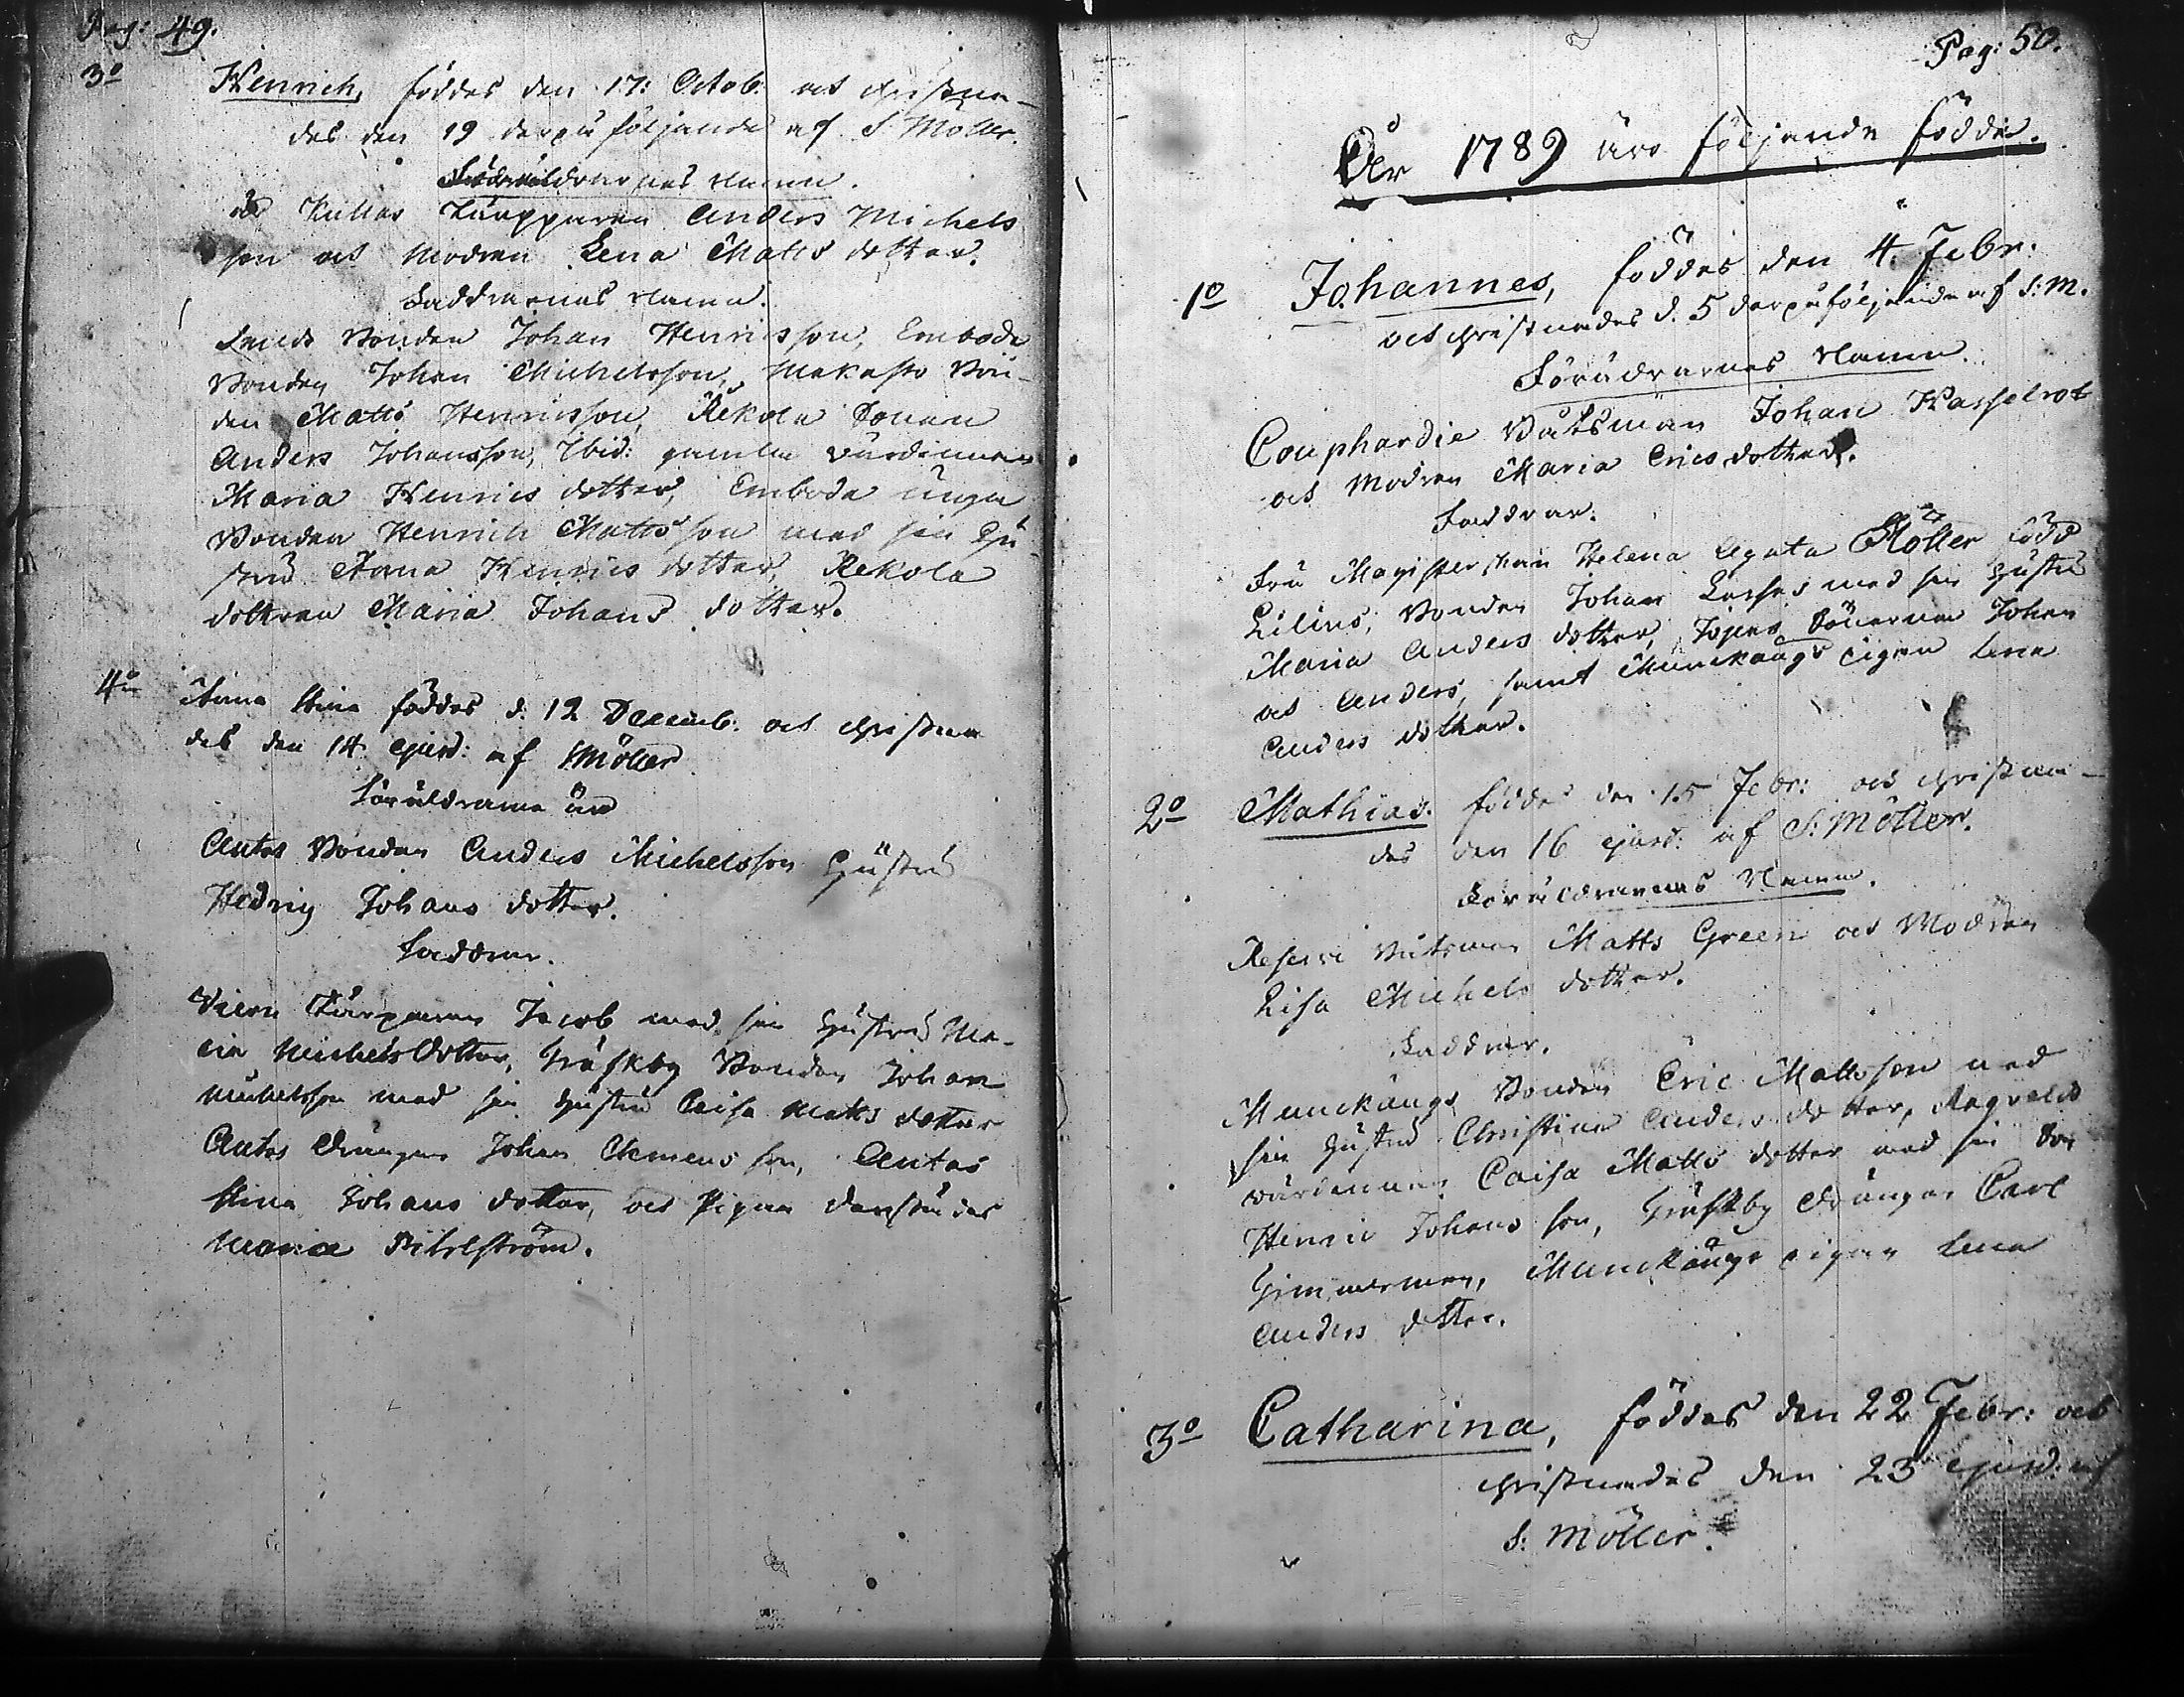 Pag: 49.
3o Henrich, föddes den 17: Octob: och christna-
des den 19 derpå följande af S: Möller.
Föräldrarnas Namn.
är Kullas Anders Michels
son och Modren Lena Matts dotter.
Faddrarnas Namn.
Bonden Johan Henricsson, Embode
Bonden Johan Michelsson, Bon-
den Matts Henricsson, Rekola Sonen
Anders Johansson, Ibid: gamla värdinnan
Maria Henrics dotter, Embode unga
Bonden Henrich Mattsson med sin Hu
stru Anna Henrics dotter, Rekola
dottren Maria Johans dotter.
4o Anna Stina föddes d: 12 Decemb: och christna
des den 14 ejusd: af S Möller
Föräldrarna äro
Antas Bonden Anders Michelsson Hustru
Hedvig Johans dotter.
Faddrar.
Jacob med sin Hustru Ma-
ria Michels dotter, Gräskby Bonden Johan
Michelsson med sin Hustru Caisa Matts dotter
Antas Drängen Johan Clemens son, Antas
Stina Johans dotter, och Pigan derstädes
Maria
Pag: 50.
År 1789 äro följande födde.
1o Johannes, föddes den 4. Febr:
och christnades d. 5 derpå följande af S: M.
Föräldrarnes Namn.
Couphardie Båtsman Johan Hasselrot
och Modren Maria Erics dotter.
Faddrar.
Fru Magisterskan Helena Agata Möller född
Lilius, Bonden Johan med sin Hustru
Maria Anders dotter, Sönerna Johan
och Anders, samt Munckängs pigan Lena
Anders dotter.
2o Mathias. föddes den 15 Febr: och christna-
des den 16 ejusd: af S: Möller.
Föräldrarnas Namn.
Reserve Båtsman Matts Green och Modren
Lisa Michels dotter.
Faddrar.
Munckängs Bonden Eric Mattsson med
sin Hustru Christina Anders dotter, Ragvalds
värdinnan Caisa Matts dotter med sin Son
Henric Johans son, Gräskby drängen Carl
Zimmerman, Munckängs pigan Lena
Anders dotter.
3o Catharina, föddes den 22 Febr: och
christnades den 23 ejusd: af
S: Möller.